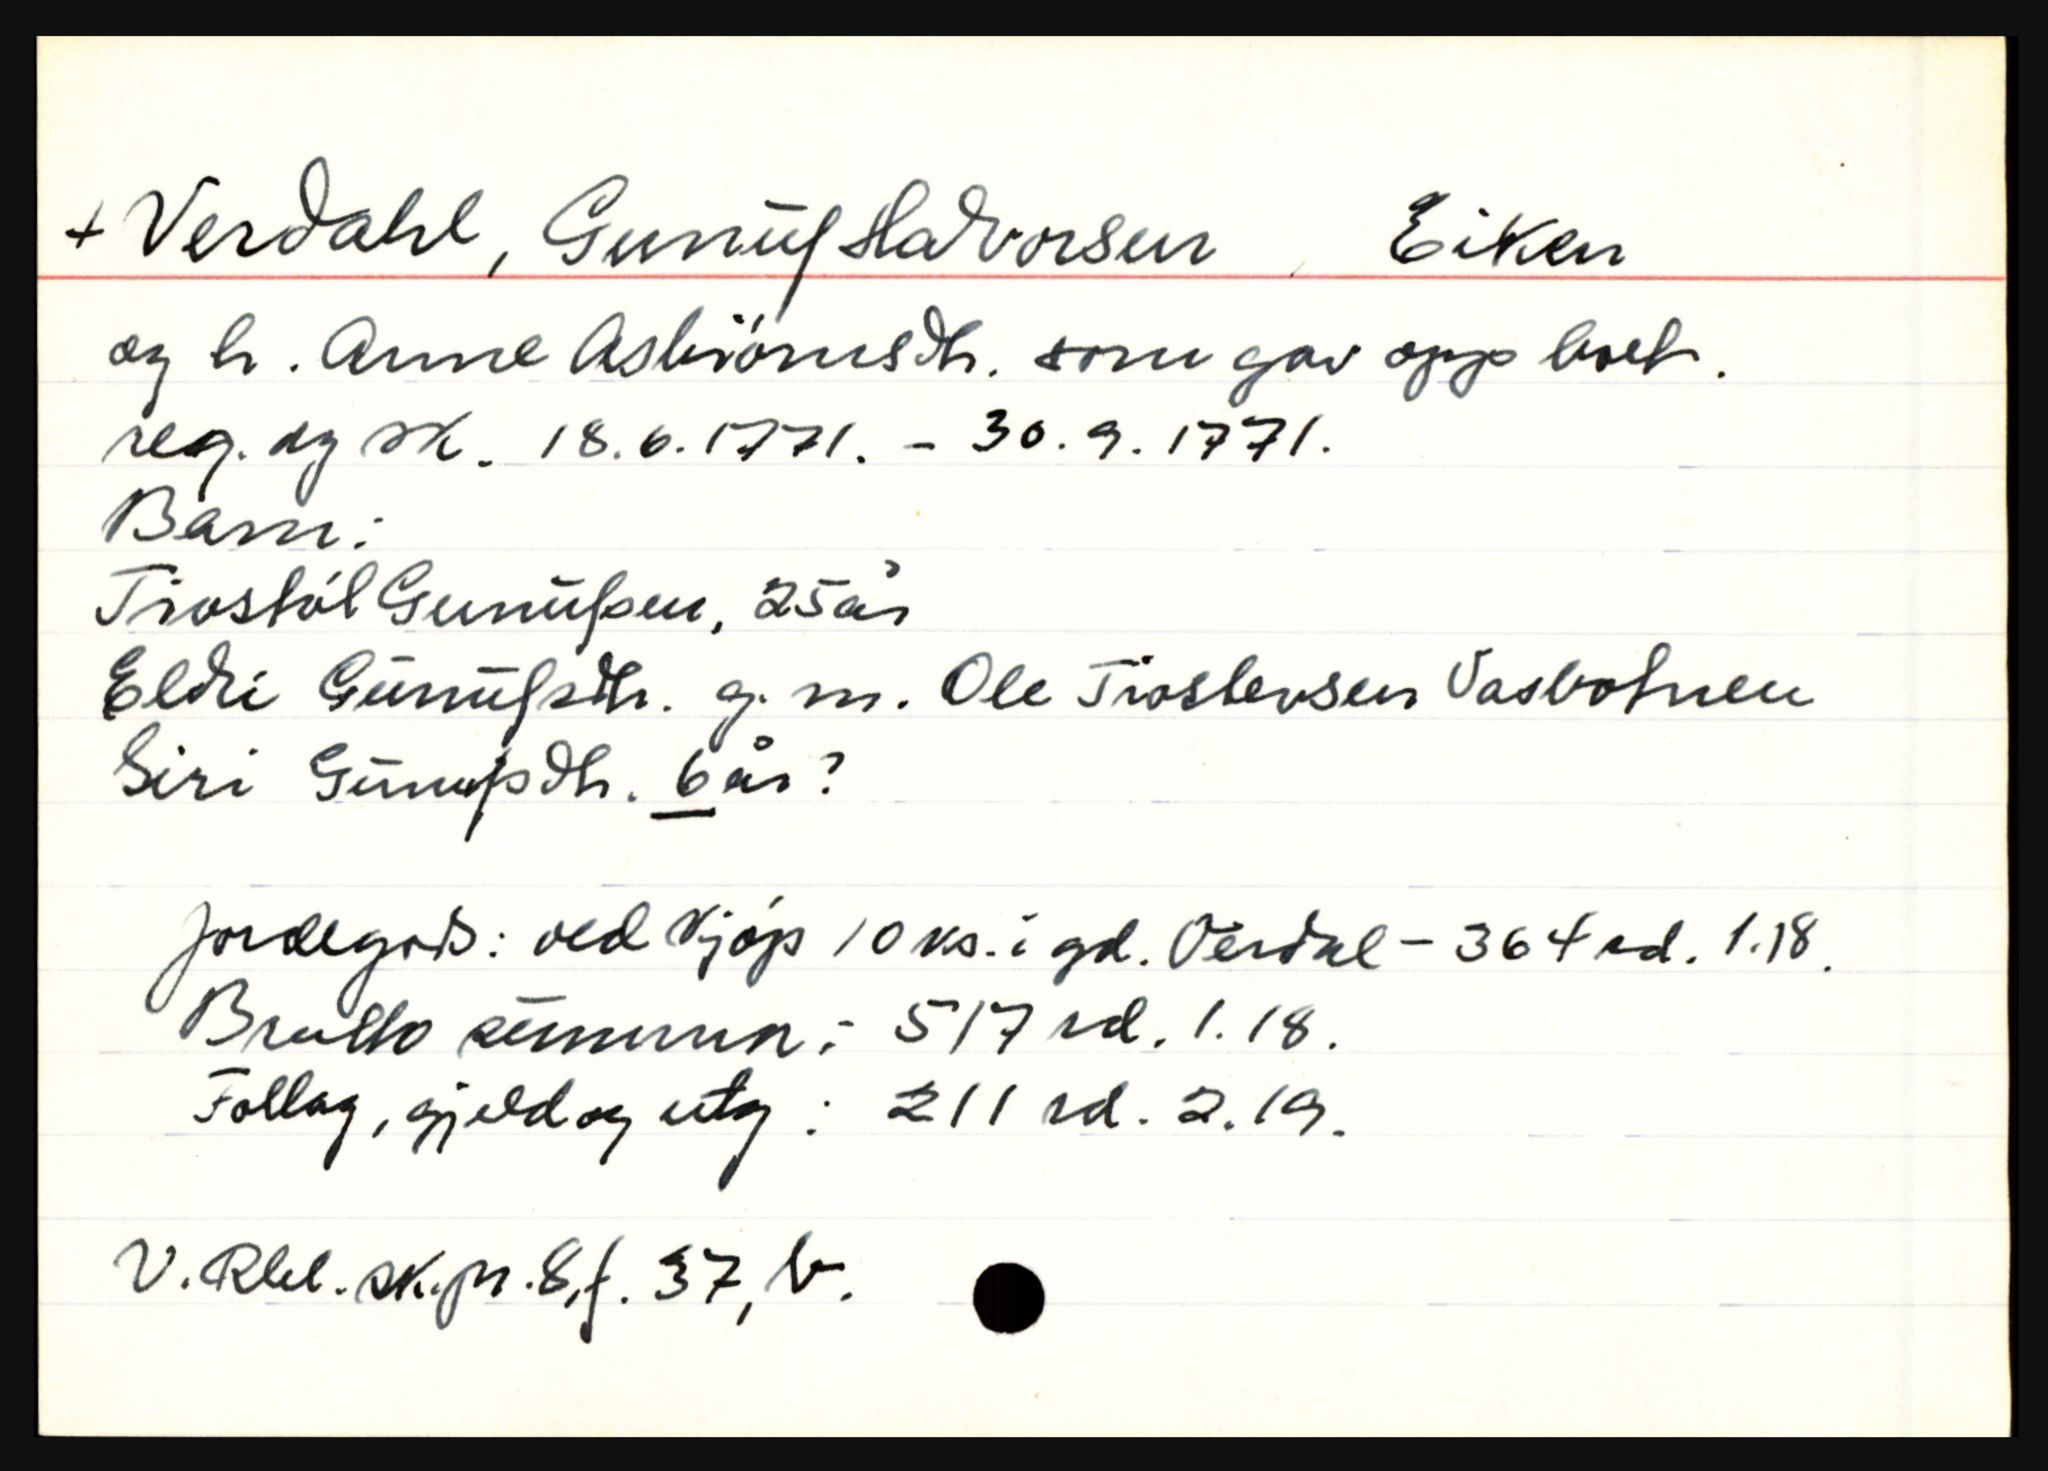 + Verdahl, Gunuf Halvorsen Eiken
og h. Anne Asbiørnsdtr. som gav opp boet.
reg. og sk. 18.6.1771. - 30.9.1771.
Barn:
Tiostøl Gunufsen, 25 år
Eldri Gunufsdtr. g. m. Ole Tiostevsen Vasbotnen
Siri Gunufsdtr. 6 år?
Jordegods: ved kjøp 10 ks. i gd. Verdal - 364 rd. 1.18.
Brutto summen: 517 rd. 1.18.
Follag, gjeld og utg: 211 rd. 2.19.
V. Rbl. sk.pr. 8, f. 37, b.